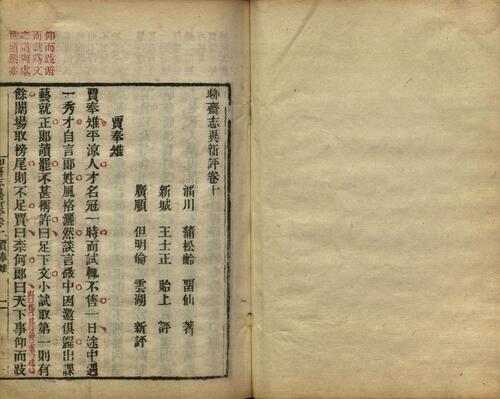 聊齋志異新評卷十
淄川 蒲松齡 留仙 著
新城 王士正 貽上 評
廣順 但明倫 雲湖 新評
賈奉雉
賈奉雉平涼人才名冠一時而試輒不售一日途中遇
一秀才自言郎姓風格灑然談言微中因邀俱歸出課
藝就正郎讀罷不甚稱許曰足下文小試取第一則有
餘闈場取榜尾則不足賈曰奈何郎曰天下事仰而跂
仰而跂俯
而就為文
之道與處
世道然亦